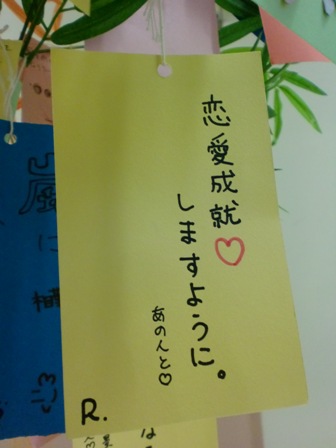 恋愛成就♡
しますように。
あのんと♡
R.
嵐に